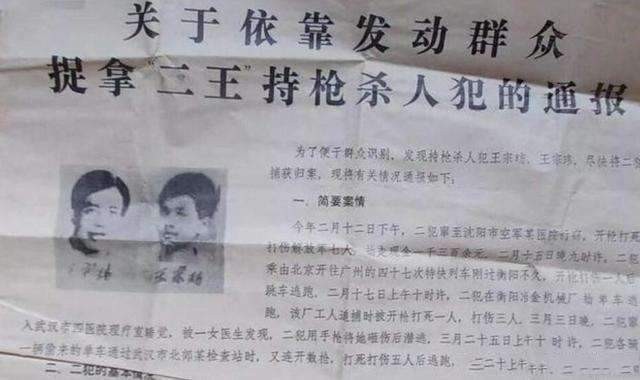 关于依靠发动群众
捉拿“二王”持枪杀人犯的通报
为了便于群众识别，发现持枪杀人犯王宗坊、王宗玮，尽快将二犯
捕获归案，现将有关情况通报如下：
一、简要案情
今年二月十二日下午，二犯窜至沈阳市空军某医院行窃，开枪打死
打伤解放军七人，抢走现金一千三百余元。二月十五日晚九时许，二犯
乘由北京开往广州的四十七次特快列车刚过衡阳不久，开枪打伤一人后
跳车逃跑，二月十七日上午十时许，二犯在衡阳冶金机械厂抢单车逃
跑，该厂工人追捕时被开枪打死一人，打伤三人。三月三日晚，二犯窜
入武汉市四医院理疗室睡觉，被一女医生发现，二犯用手枪将她砸伤后潜逃，三月二十五日上午十时许，二犯各骑
一辆偷来的单车通过武汉市北部某检查站时，又连开数枪，打死打伤五人后逃跑，
二、二犯的基本情况